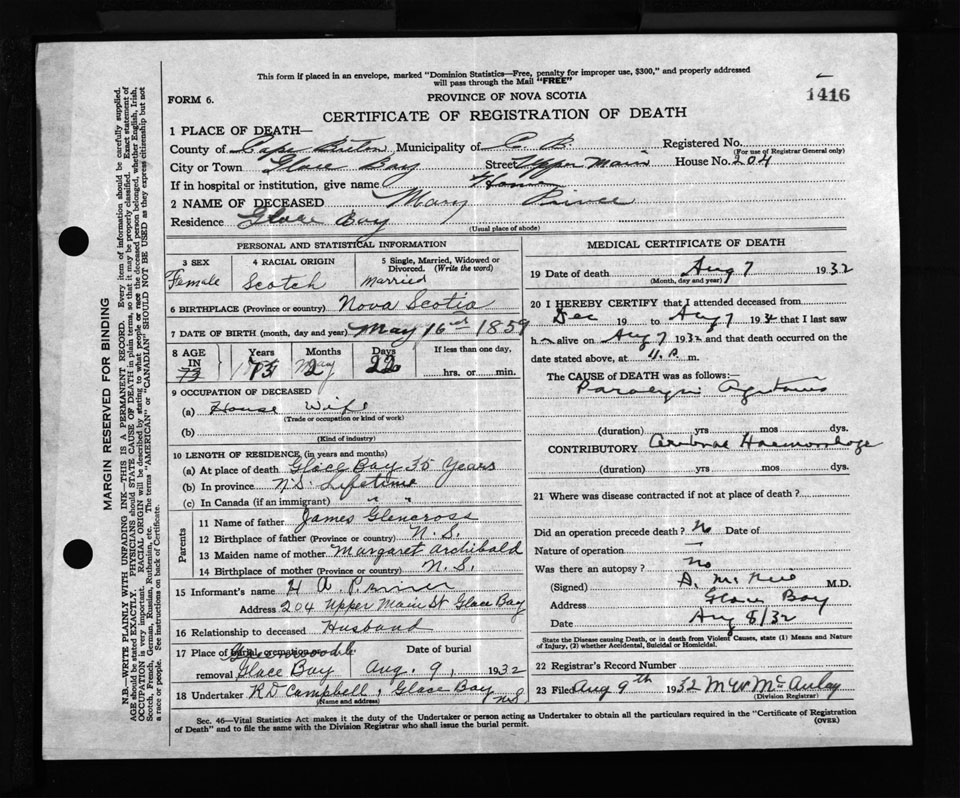 This form if placed in an envelope, marked "Dominion Statistics—Free, penalty for improper use, $300," and properly addressed
will pass through the Mail "FREE"
1416
FORM 6.
PROVINCE OF NOVA SCOTIA
CERTIFICATE OF REGISTRATION OF DEATH
1 PLACE OF DEATH—
County of Cape Breton Municipality of C. B. Registered No.
(For use of Registrar General only)
City or Town Glace Bay Street Upper Main House No. 204
If in hospital or institution, give name Home
2 NAME OF DECEASED Mary
Residence Glace Bay
(Usual place of abode)
PERSONAL AND STATISTICAL INFORMATION
3 SEX
Female
4 RACIAL ORIGIN
Scotch
5 Single, Married, Widowed or
Divorced. (Write the word)
Married
6 BIRTHPLACE (Province or country) Nova Scotia
7 DATE OF BIRTH (month, day and year) May 16 1859
8 AGE
IN
73
Years
73
Months
2
Days
22
If less than one day,
hrs. or min.
9 OCCUPATION OF DECEASED
(a) House Wife
(Trade or occupation or kind of work)
(b)
(Kind of industry)
10 LENGTH OF RESIDENCE (in years and months)
(a) At place of death Glace Bay 35 Years
(b) In province N.S. Lifetime
(c) In Canada (if an immigrant) " "
Parents
11 Name of father James Glencross
12 Birthplace of father (Province or country) N. S.
13 Maiden name of mother Margaret Archibald
14 Birthplace of mother (Province or country) N. S.
15 Informant's name H A
Address 204 Upper Main St Glace Bay
16 Relationship to deceased Husband
17 Place of burial, cremation or Greenwood
Date of burial
removal Glace Bay Aug. 9, 1932
18 Undertaker R D Campbell, Glace Bay NS
(Name and address)
MEDICAL CERTIFICATE OF DEATH
19 Date of death Aug 7 1932
(Month, day and year)
20 I HEREBY CERTIFY that I attended deceased from
Dec 19 to Aug 7 1932 that I last saw
h alive on Aug 7 1932 and that death occurred on the
date stated above, at 4. P. m.
The CAUSE OF DEATH was as follows:—
Paralysis Agitans
(duration) yrs mos. dys.
CONTRIBUTORY Cerebral Haemorrhage
(duration) yrs. mos. dys.
21 Where was disease contracted if not at place of death?
Did an operation precede death? No Date of
Nature of operation —
Was there an autopsy? No
(Signed) M.D.
Address Glace Bay
Date Aug 8/32
State the Disease causing Death, or in death from Violent Causes, state (1) Means and Nature
of Injury, (2) whether Accidental, Suicidal or Homicidal.
22 Registrar's Record Number
23 Filed Aug 9th 1932 M W McAulay
(Division Registrar)
Sec. 46—Vital Statistics Act makes it the duty of the Undertaker or person acting as Undertaker to obtain all the particulars required in the "Certificate of Registration
of Death" and to file the same with the Division Registrar who shall issue the burial permit.
(OVER)
MARGIN RESERVED FOR BINDING
N.B.—WRITE PLAINLY WITH UNFADING INK—THIS IS A PERMANENT RECORD. Every item of information should be carefully supplied.
AGE should be stated EXACTLY. PHYSICIANS should STATE CAUSE OF DEATH in plain terms, so that it may be properly classified. Exact statement of
OCCUPATION is very important. RACIAL ORIGIN will be described by stating to what people or race the deceased person belonged, whether English, Irish,
Scotch, French, German, Russian, Ruthenian, etc. The terms "AMERICAN" or "CANADIAN" SHOULD NOT BE USED as they express citizenship but not
a race or people. See instructions on back of Certificate.